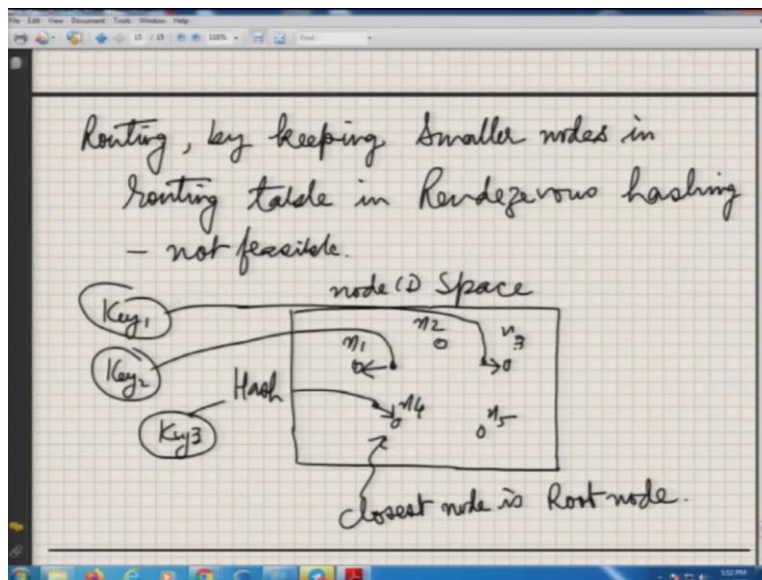 File Edit View Document Tools Window Help
15 / 15 110% Find
Routing, by keeping smaller nodes in
routing table in Rendezevous hashing
- not feasible.
node ID Space
Key1
n1 n2 n3
Key2
Hash
Key3
n4 n5
closest node is Root node.
5:02 PM